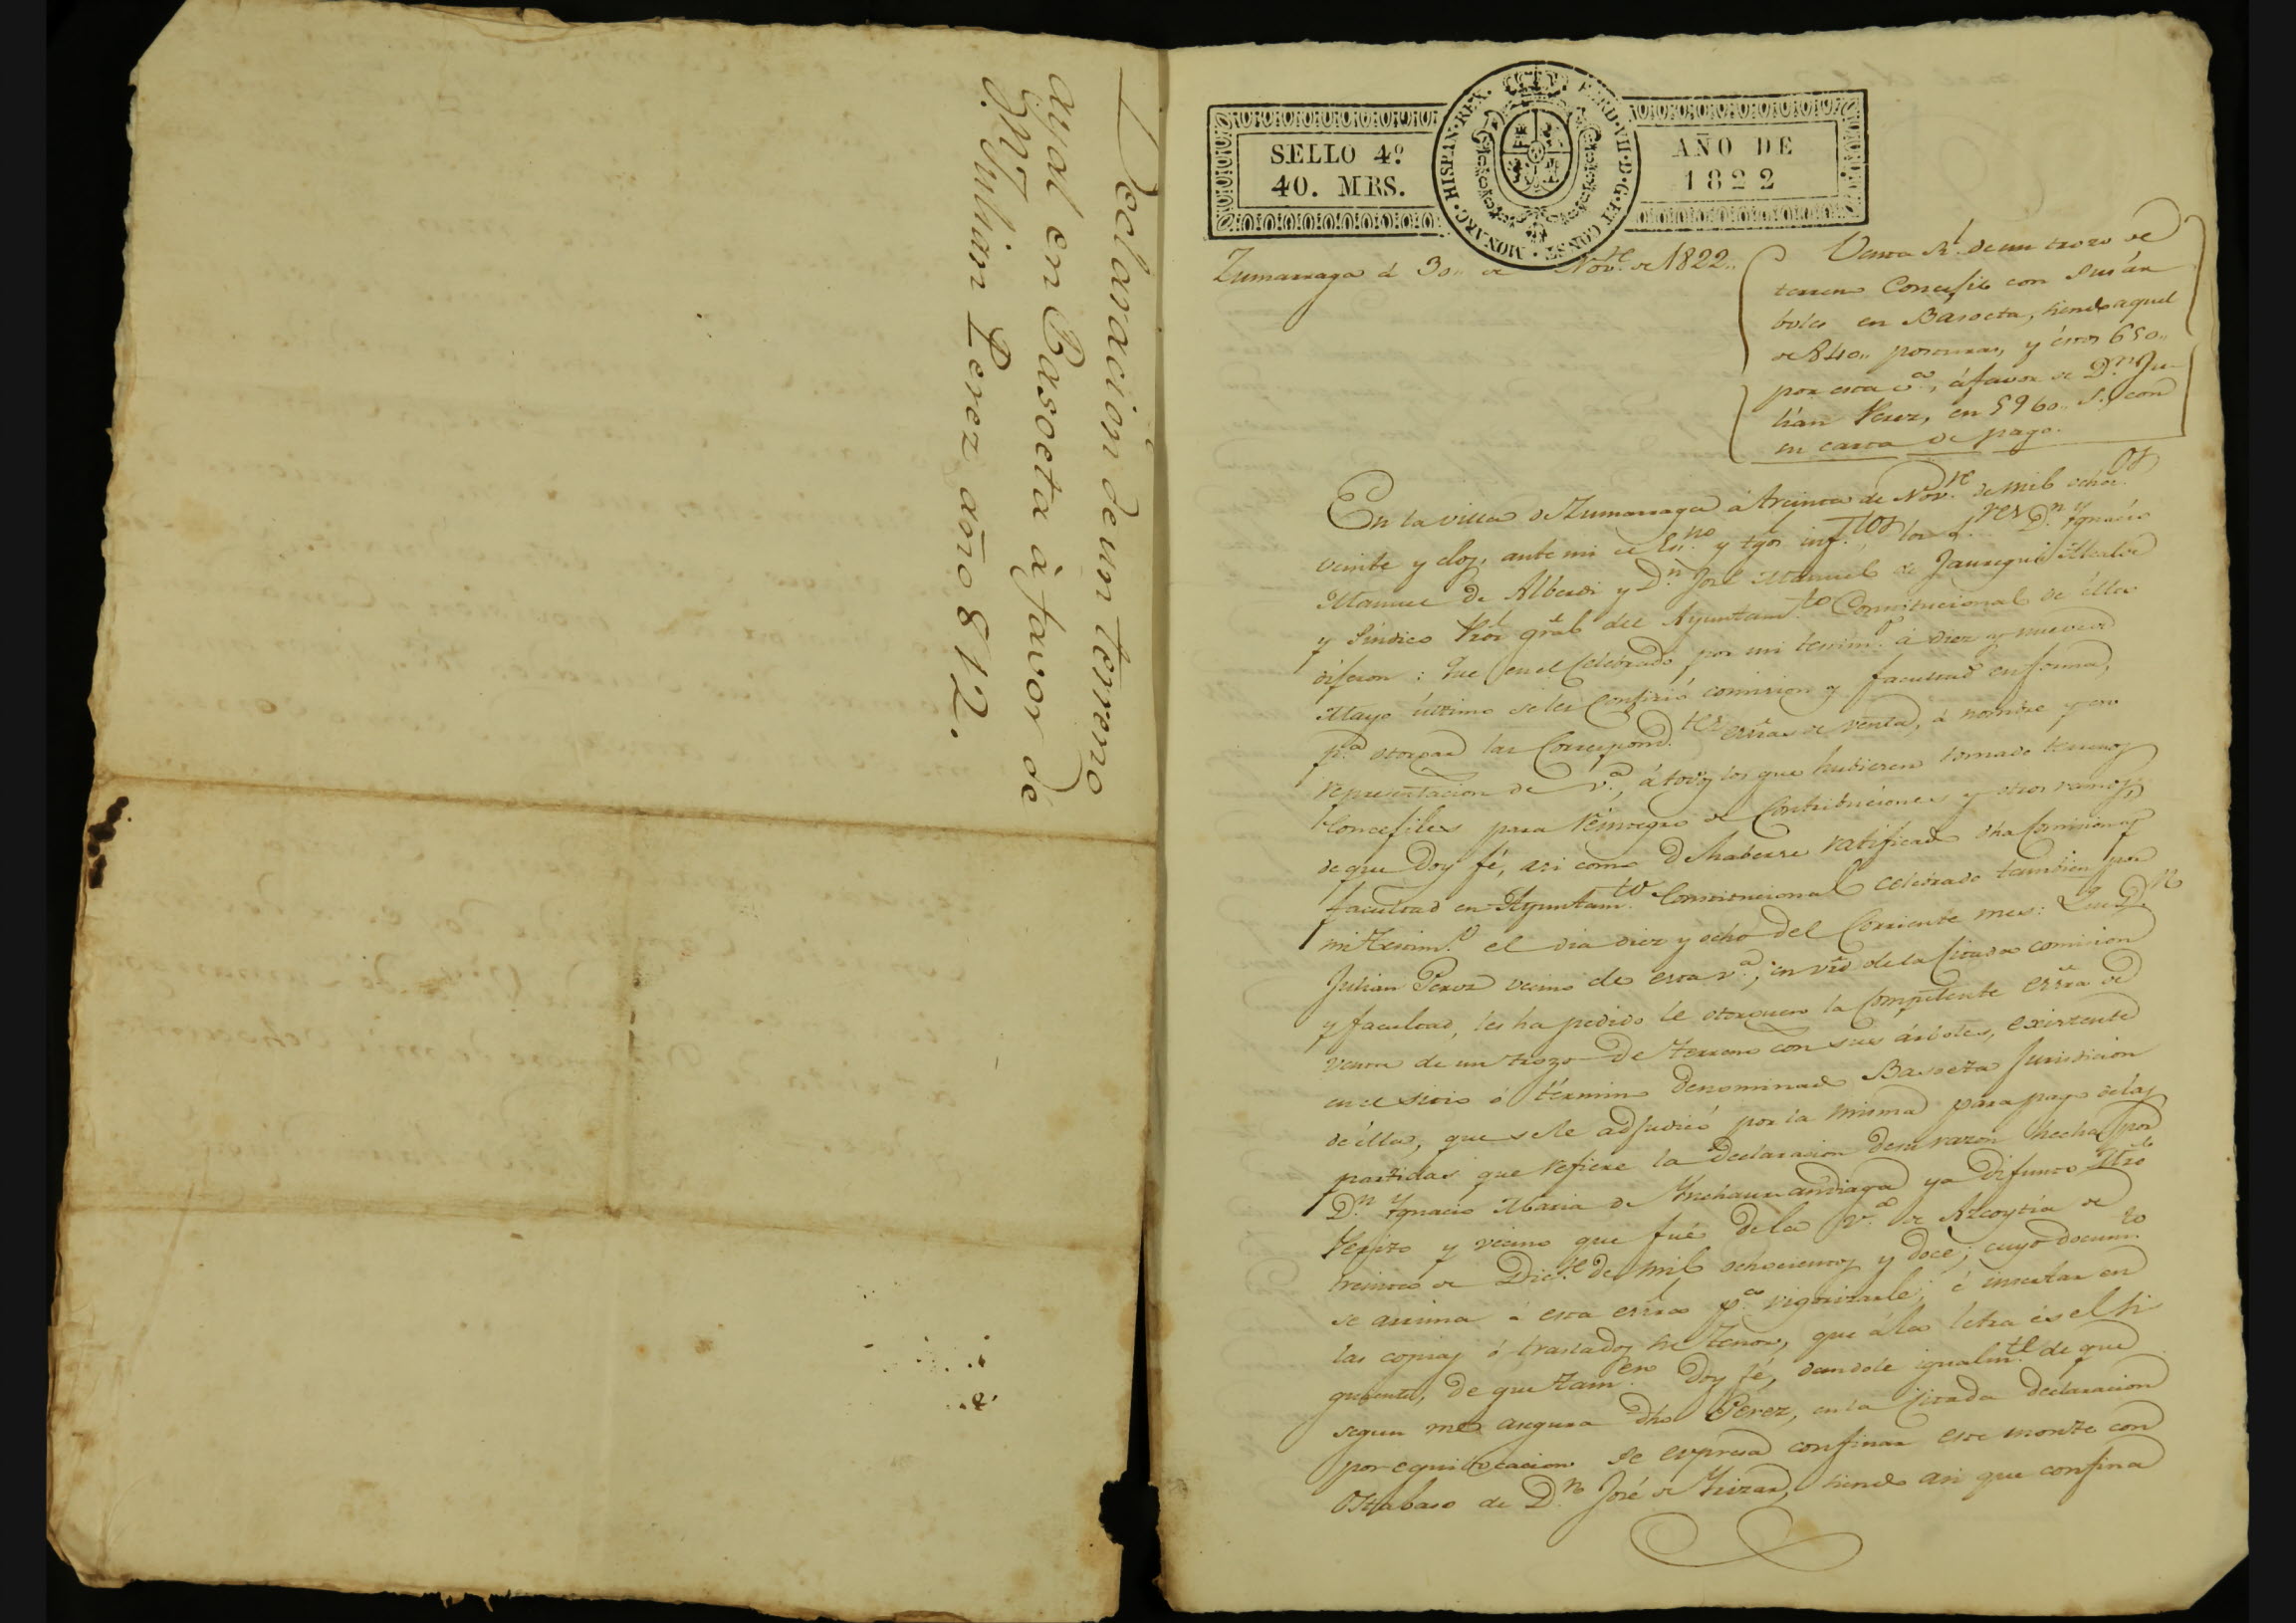 Declaracion de un terreno
ayal en Basoeta á favor de
Dn. Julian Perez año 812.
SELLO 4º
40. MRS.
HISPAN·REX. FERD·VII·D·G·ET CONST· MONARC·
AÑO DE
1822
Zumarraga á 30,, de Nove. de 1822,,
Venta Rl. de un trozo de
terreno Concejil con sus ár
boles en Basoeta, siendo aquel
de 840,, posturas, y éstos 650,,
por esta va., á favor de Dn. Ju-
lián Perez, en 5960,, con
su carta de pago.
En la villa de Zumarraga á treinta de Nove. de mil ochocos.
veinte y dos, ante mi el Esno. y tgos. inftos. los Sres. Dn. Ygnacio
Manuel de Alberdi y Dn. José Manuel de Jauregui Alcalde
y Síndico Pror. gral del Ayuntamto. Constitucional de ella
dijeron: Que en el celebrado por mi testimo. á diez y nueve de
Mayo último se les confirió comision y facultad en forma,
pa. otorgar las Correspondtes. esrias de venta, á nombre y en
representacion de va., á todos los que hubieren tomado terrenos
Concejiles para reintegro de Contribuciones y otros ramos,
de que Doy fé, asi como de haberse ratificado dha Comision y
facultad en Ayuntamto. Constitucional celebrado tambien por
mi Testimo. el dia diez y ocho del Corriente mes: Que Dn.
Julian Perez vecino de esta va., en vrd de la citada comision
y facultad, les ha pedido le otorguen la Competente esrra de
venta de un trozo de terreno con sus árboles, existente
en el sitio ó término denominado Basoeta Jurisdicion
de élla, que se le adjudicó por la misma para pago de las
partidas que refiere la Declaracion de su razon hecha por
Dn. Ygnacio Maria de Ynchaurrandiaga ya difunto Mro
Perito y vecino que fué de la va. de Azcoytia de
treinta de Dice. de mil ochocientos y doce; cuyo documto.
se arrima á esta esrra pa. vigorizarle, é insertar en
las copias ó traslados su tenor, que á la letra es el si
guiente, de que tamen. Doy fé, dandole igualmte. de que
segun me asegura dho Perez, en la citada declaracion
por equivocacion se espresa confinar este monte con
Ostabaso de Dn. José de Yrizar, siendo asi que confina